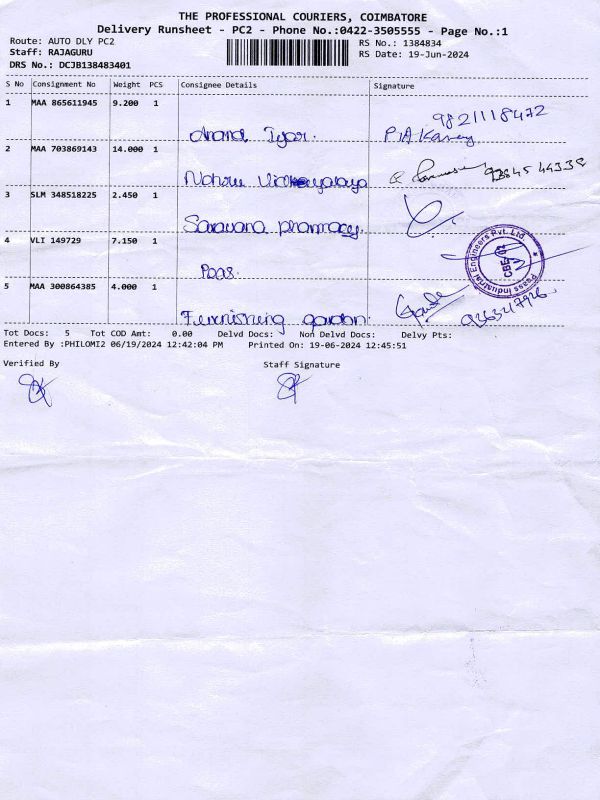 THE PROFESSIONAL COURIERS, COIMBATORE
Delivery Runsheet - PC2 - Phone No.:0422-3505555 - Page No.:1
Route: AUTO DLY PC2
RS No.: 1384834
Staff: RAJAGURU
RS Date: 19-Jun-2024
DRS No.: DCJB138483401
S No Consignment No Weight PCS Consignee Details Signature
1 MAA 865611945 9.200 1
9821118472
Anand Iyar.
2 MAA 703869143 14.000 1
Nahru
3 SLM 348518225 2.450 1
Saravana pharmacy.
4 VLI 149729 7.150 1
Paas.
Paass Industrial Engineers Pvt. Ltd.
CBE-02
5 MAA 300864385 4.000 1
garden.
Tot Docs: 5 Tot COD Amt: 0.00 Delvd Docs: Non Delvd Docs: Delvy Pts:
Entered By :PHILOMI2 06/19/2024 12:42:04 PM Printed On: 19-06-2024 12:45:51
Verified By Staff Signature